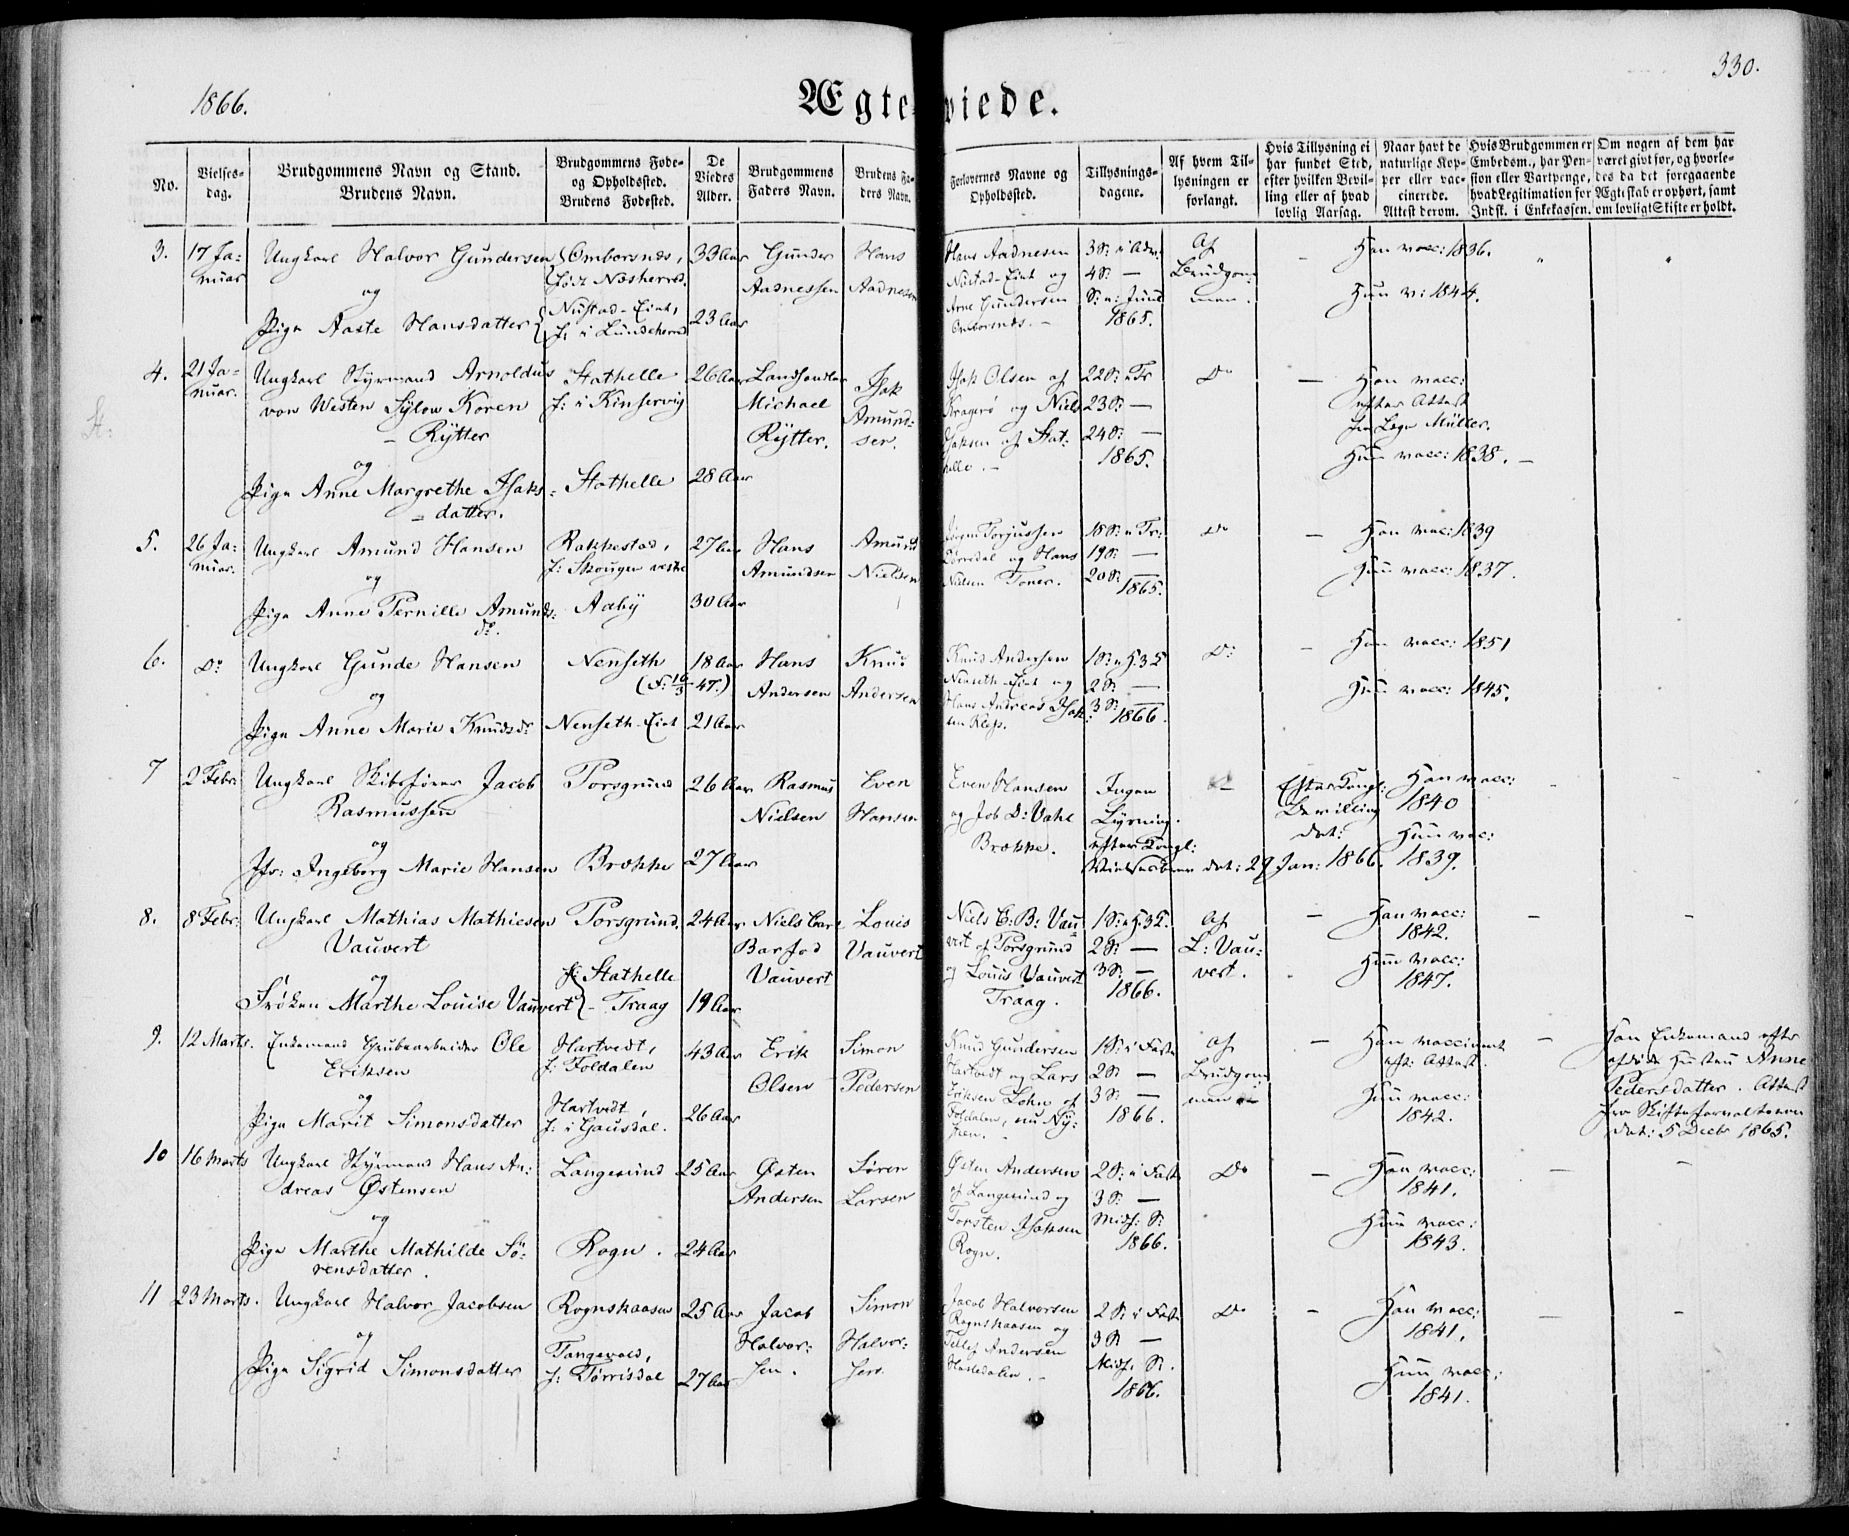 1866.
330.
Ægteviede.
No.
Vielses-
dag.
Brudgommens Navn og Stand.
Brudens Navn.
Brudgommens Føde-
og Opholdssted.
Brudens Fødested.
De
Viedes
Alder.
Brudgommens
Faders Navn.
Brudens Fa-
ders Navn.
Forlovernes Navne og
Opholdssted.
Tillysnings-
dagene.
Af hvem Til-
lysningen er
forlangt.
Hvis Tillysning ei
har fundet Sted,
efter hvilken Bevil-
ling eller af hvad
lovlig Aarsag.
Naar havt de
naturlige Kop-
per eller vac-
cinerede.
Attest derom.
Hvis Brudgommen er
Embedsm., har Pen-
sion eller Vartpenge,
hvad Legitimation for
Indsk. i Enkekassen.
Om nogen af dem har
været givt for, og hvorle-
des da det foregaaende
Ægteskab er ophørt, samt
om lovligt Skifte er holdt.
3.
17 Ja-
nuar
Ungkarl Halvor Gundersen
og
Pige Aaste Hansdatter
Omborsnæs,
født Næsherred.
Nustad-Eiet,
f: i Lundeherred
33 Aar
23 Aar
Gunder
Aadnessen
Hans
Aadnesen
Hans Aadnesen
Nustad-Eiet og
Arne Gundersen
Omborsnæs. -
3 S: i Adv:
4 S: —
1865.
Af
Brudgom-
men.
Han vacc: 1836.
Hun v: 1844.
4.
21 Ja-
nuar.
Ungkarl Styrmand Arnoldus
von Westen Sylow Koren
- Rÿtter
og
Pige Anne Margrethe Isaks-
- datter.
Stathelle
f: i Kinservig
Stathelle
26 Aar
28 Aar
Michael
Rÿtter.
Isak
Amund-
sen.
Isak Olsen af
Kragerø og Niels
Isaksen af Stat-
helle. -
22 S: e Tr
23 S: —
24 S: —
1865.
Do
—
Han vacc:
efter Attest
Müller.
Hun vacc: 1838. —
5.
26 Ja-
nuar.
Ungkarl Amund Hansen
og
Pige Anne Pernille Amunds-
dr.
Rakkestad,
Aaby
27 Aar
30 Aar
Hans
Amundsen
Amund
Nielsen
og Hans
Nielsen Toner.
18 S: e Tr:
19 S: —
20 S: —
1865.
Do
—
Han vac: 1839
Hun vacc: 1837.
6.
Do
Ungkarl Gunde Hansen
og
Pige Anne Marie Knudsdr
Nenseth
(f: 16/3 47.)
Nenseth-Eiet
18 Aar
21 Aar
Hans
Andersen
Knud
Andersen
Knud Andersen
Nenseth-Eiet og
Hans Andreas Isak-
sen
1 S: e H. 3 K
2 S: —
3 S: —
1866.
Do
—
Han vacc: 1851
Hun vacc: 1845.
7
2 Febr:
Ungkarl Skibsfører Jacob
Rasmussen
og
Jfr: Ingeborg Marie Hansen
Porsgrund
Brække
26 Aar
27 Aar
Rasmus
Nielsen
Even
Hansen
Even Hansen
og Job D: Vahl
Brække.
Ingen
Lysning.
efter Kongl:
Vielsesbrev dat: 29 Jan: 1866.
Efter Kongl:
Bevilling
dat:
Han vacc:
1840
Hun vac:
1839.
8.
8 Febr:
Ungkarl Mathias Mathiesen
Vauvert
og
Frøken Marthe Louise Vauvert
Porsgrund.
f: Stathelle
- Traag
24 Aar
19 Aar
Niels Carl
Barfod
Vauvert
Louis
Vauvert
Niels C: B: Vau-
vert af Porsgrund
og Louis Vauvert
Traag.
1 S: e H. 3 K.
2 S: —
3 S: —
1866.
af
L: Vau-
vert.
—
Han vacc:
1842.
Hun vacc:
1847.
9.
12 Marts.
Enkemand Grubearbeider Ole
Eriksen
og
Pige Marit Simonsdatter
Hartvedt,
f: Foldalen
Hartvedt,
f: i Gausdal.
43 Aar
26 Aar
Erik
Olsen
Simon
Pedersen
Knud Gundersen
Hartvedt og Lars
Eriksen Lohn af
Foldalen, nu Nÿ-
hren.
1 S: i Faste
2 S: —
3 S: —
1866.
af
Brudgom-
men
—
Han vaccineret
eft: Attest.
Hun vacc:
1842.
—
Han Enkemand efter
afdøde Hustru Anne
Pedersdatter. Attest
fra Skifteforvalteren
dat: 5 Decbr 1865.
10
16 Marts
Ungkarl Styrmand Hans An-
dreas Østensen
og
Pige Marthe Mathilde Sö-
rensdatter.
Langesund
Rogn.
25 Aar
24 Aar
Østen
Andersen
Søren
Larsen
Østen Andersen
af Langesund og
Torsten Isaksen
Rogn.
2 S: i Faste
3 S: —
Midf: S:
1866.
Do
—
Han vacc:
1841.
Hun vacc:
1843.
11
23 Marts.
Ungkarl Halvor Jacobsen
og
Pige Sigrid Simonsdatter
Rognshaasen
Tangevald,
f: Tørrisdal
25 Aar
27 Aar
Jacob
Halvor-
sen.
Simon
Halvor-
sen.
Jacob Halvorsen
Rognshaasen og
Tellef Andersen
2 S: i Faste
3 S: —
Midf: S.
1866.
Do
—
Han vacc:
1841.
Hun vacc:
1841.